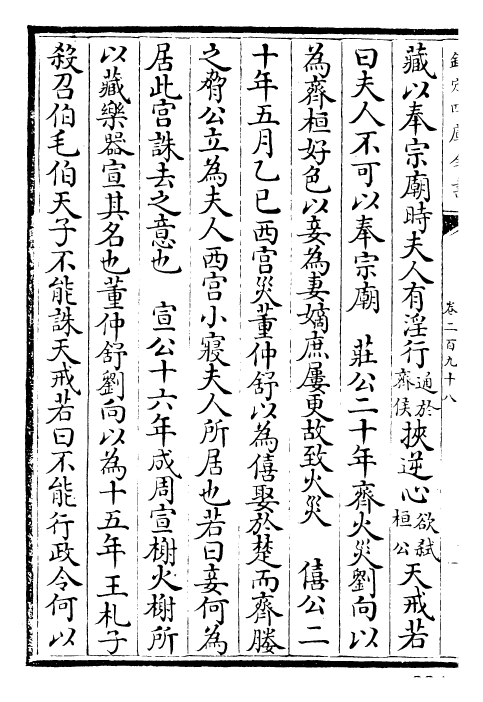 欽定四庫全書
卷二百九十八
藏以奉宗廟時夫人有淫行通於齊侯挾逆心欲弑桓公天戒若
曰夫人不可以奉宗廟　莊公二十年齊火災劉向以
為齊桓好色以妾為妻嫡庶屢更故致火災　僖公二
十年五月乙巳西宫災董仲舒以為僖娶於楚而齊媵
之脅公立為夫人西宫小寢夫人所居也若曰妾何為
居此宫誅去之意也　宣公十六年成周宣榭火榭所
以藏樂器宣其名也董仲舒劉向以為十五年王札子
殺召伯毛伯天子不能誅天戒若曰不能行政令何以